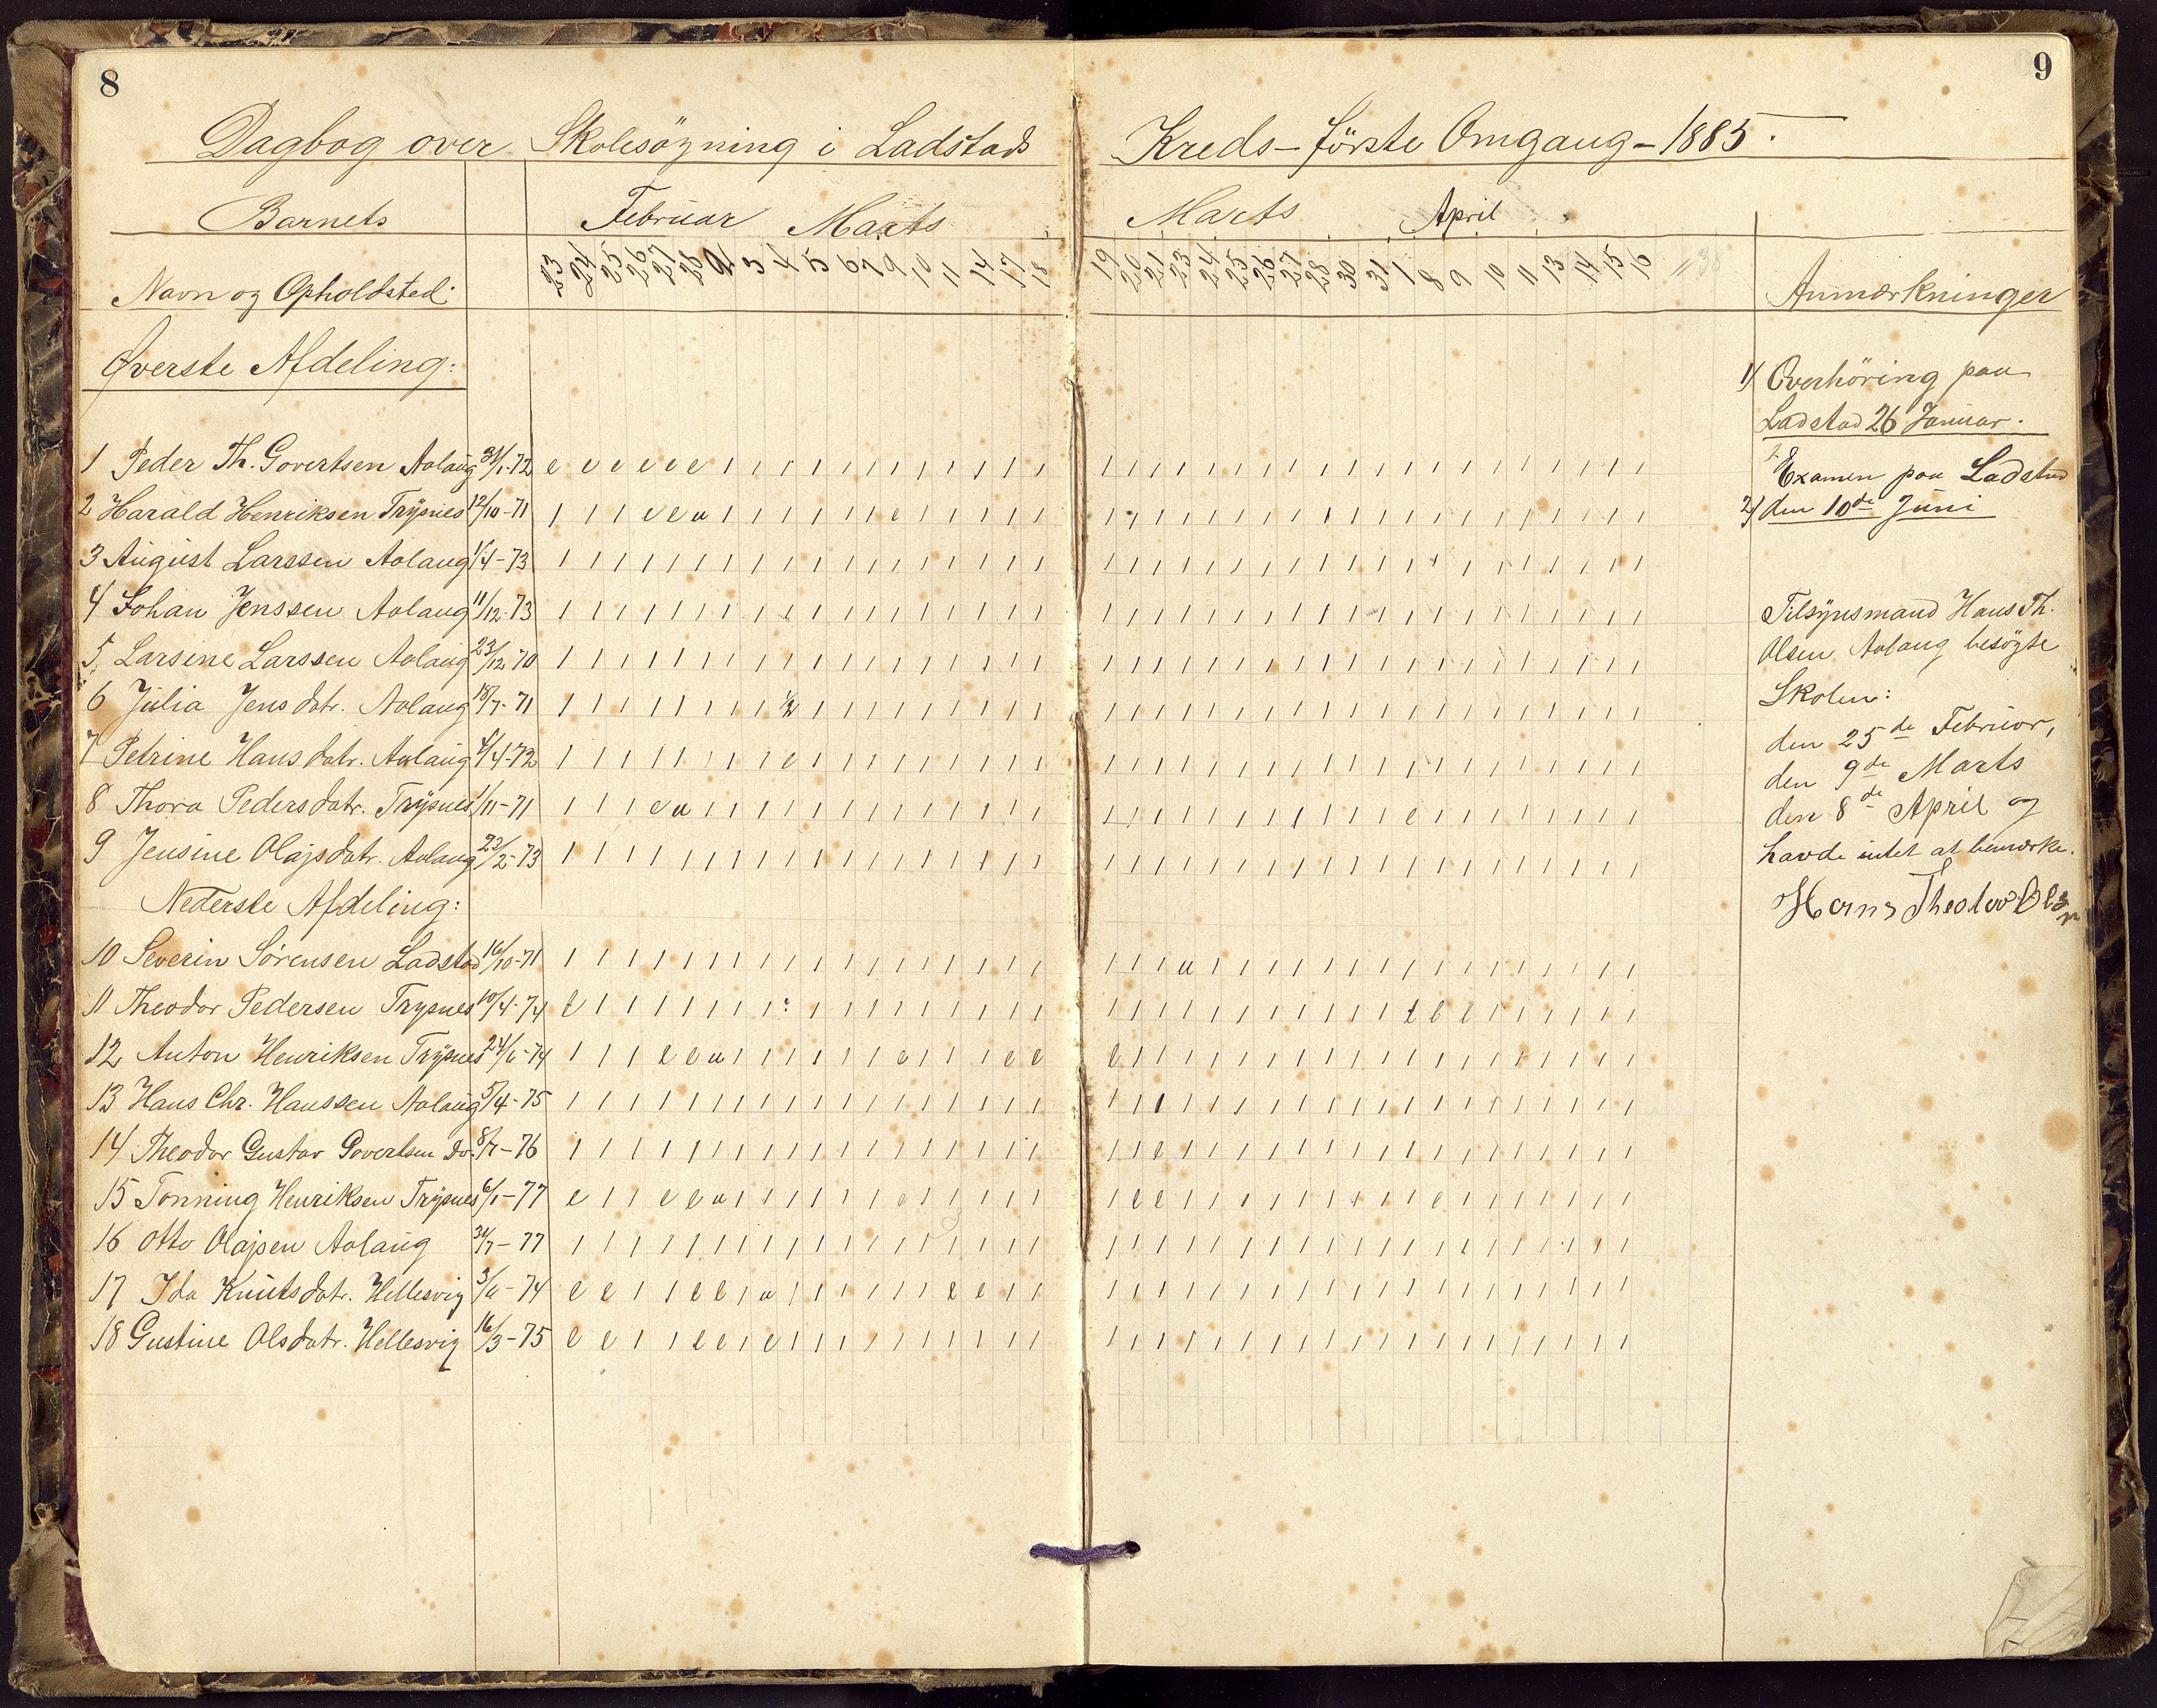 8
Dagbog over Skolesögning i Ladstads
Barnets
Februar Marts
23 24 25 26 27 28 2 3 4 5 6 7 9 10 11 14 17 18
Navn og Opholdsted
Øverste Afdeling:
1 Peder Th. Govertsen Aolaug 31/1-72
2 Harald Henriksen Trÿsnes 12/10-71
3 August Larssen Aolaug 1/4-73
4 Johan Jenssen Aolaug 11/12-73
5 Larsine Larssen Aolaug 23/12-70
6 Julia Jensdatr. Aolaug 18/7-71 1/2
7 Petrine Hansdatr. Aolaug 4/4-72
8 Thora Pedersdatr. Trÿsnes 1/11-71
9 Jensine Olajsdatr. Aolaug 22/2-73
Nederste Afdeling:
10 Severin Sørensen Ladstad 16/10-71
11 Theodor Pedersen Trysnes 10/4-74
12 Anton Henriksen Trÿsnes 24/6-74
13 Hans Chr. Hanssen Aolaug 5/4-75
14 Theodor Gustav Govertsen Do 8/7-76
15 Tønning Henriksen Trÿsnes 6/1-77
16 Otto Olajsen Aolaug 31/7-77
17 Ida Knutsdatr. Hellesvig 3/6-74
18 Gustine Olsdatr. Hellesvig 16/3-75
9
Kreds - förste Omgang - 1885.
Marts April
19 20 21 23 24 25 26 27 28 30 31 1 8 9 10 11 13 14 15 16 38
Anmærkninger
1) Overhöring paa
Ladstad 26 Januar.
Examen paa Ladstad
2) den 10de Juni
Tilsÿnsmand Hans Th.
Olsen Aolaug besögte
Skolen:
den 25de Februar,
den 9de Marts
den 8de April og
havde intet at bemærke.
Hans Theodor Olsen